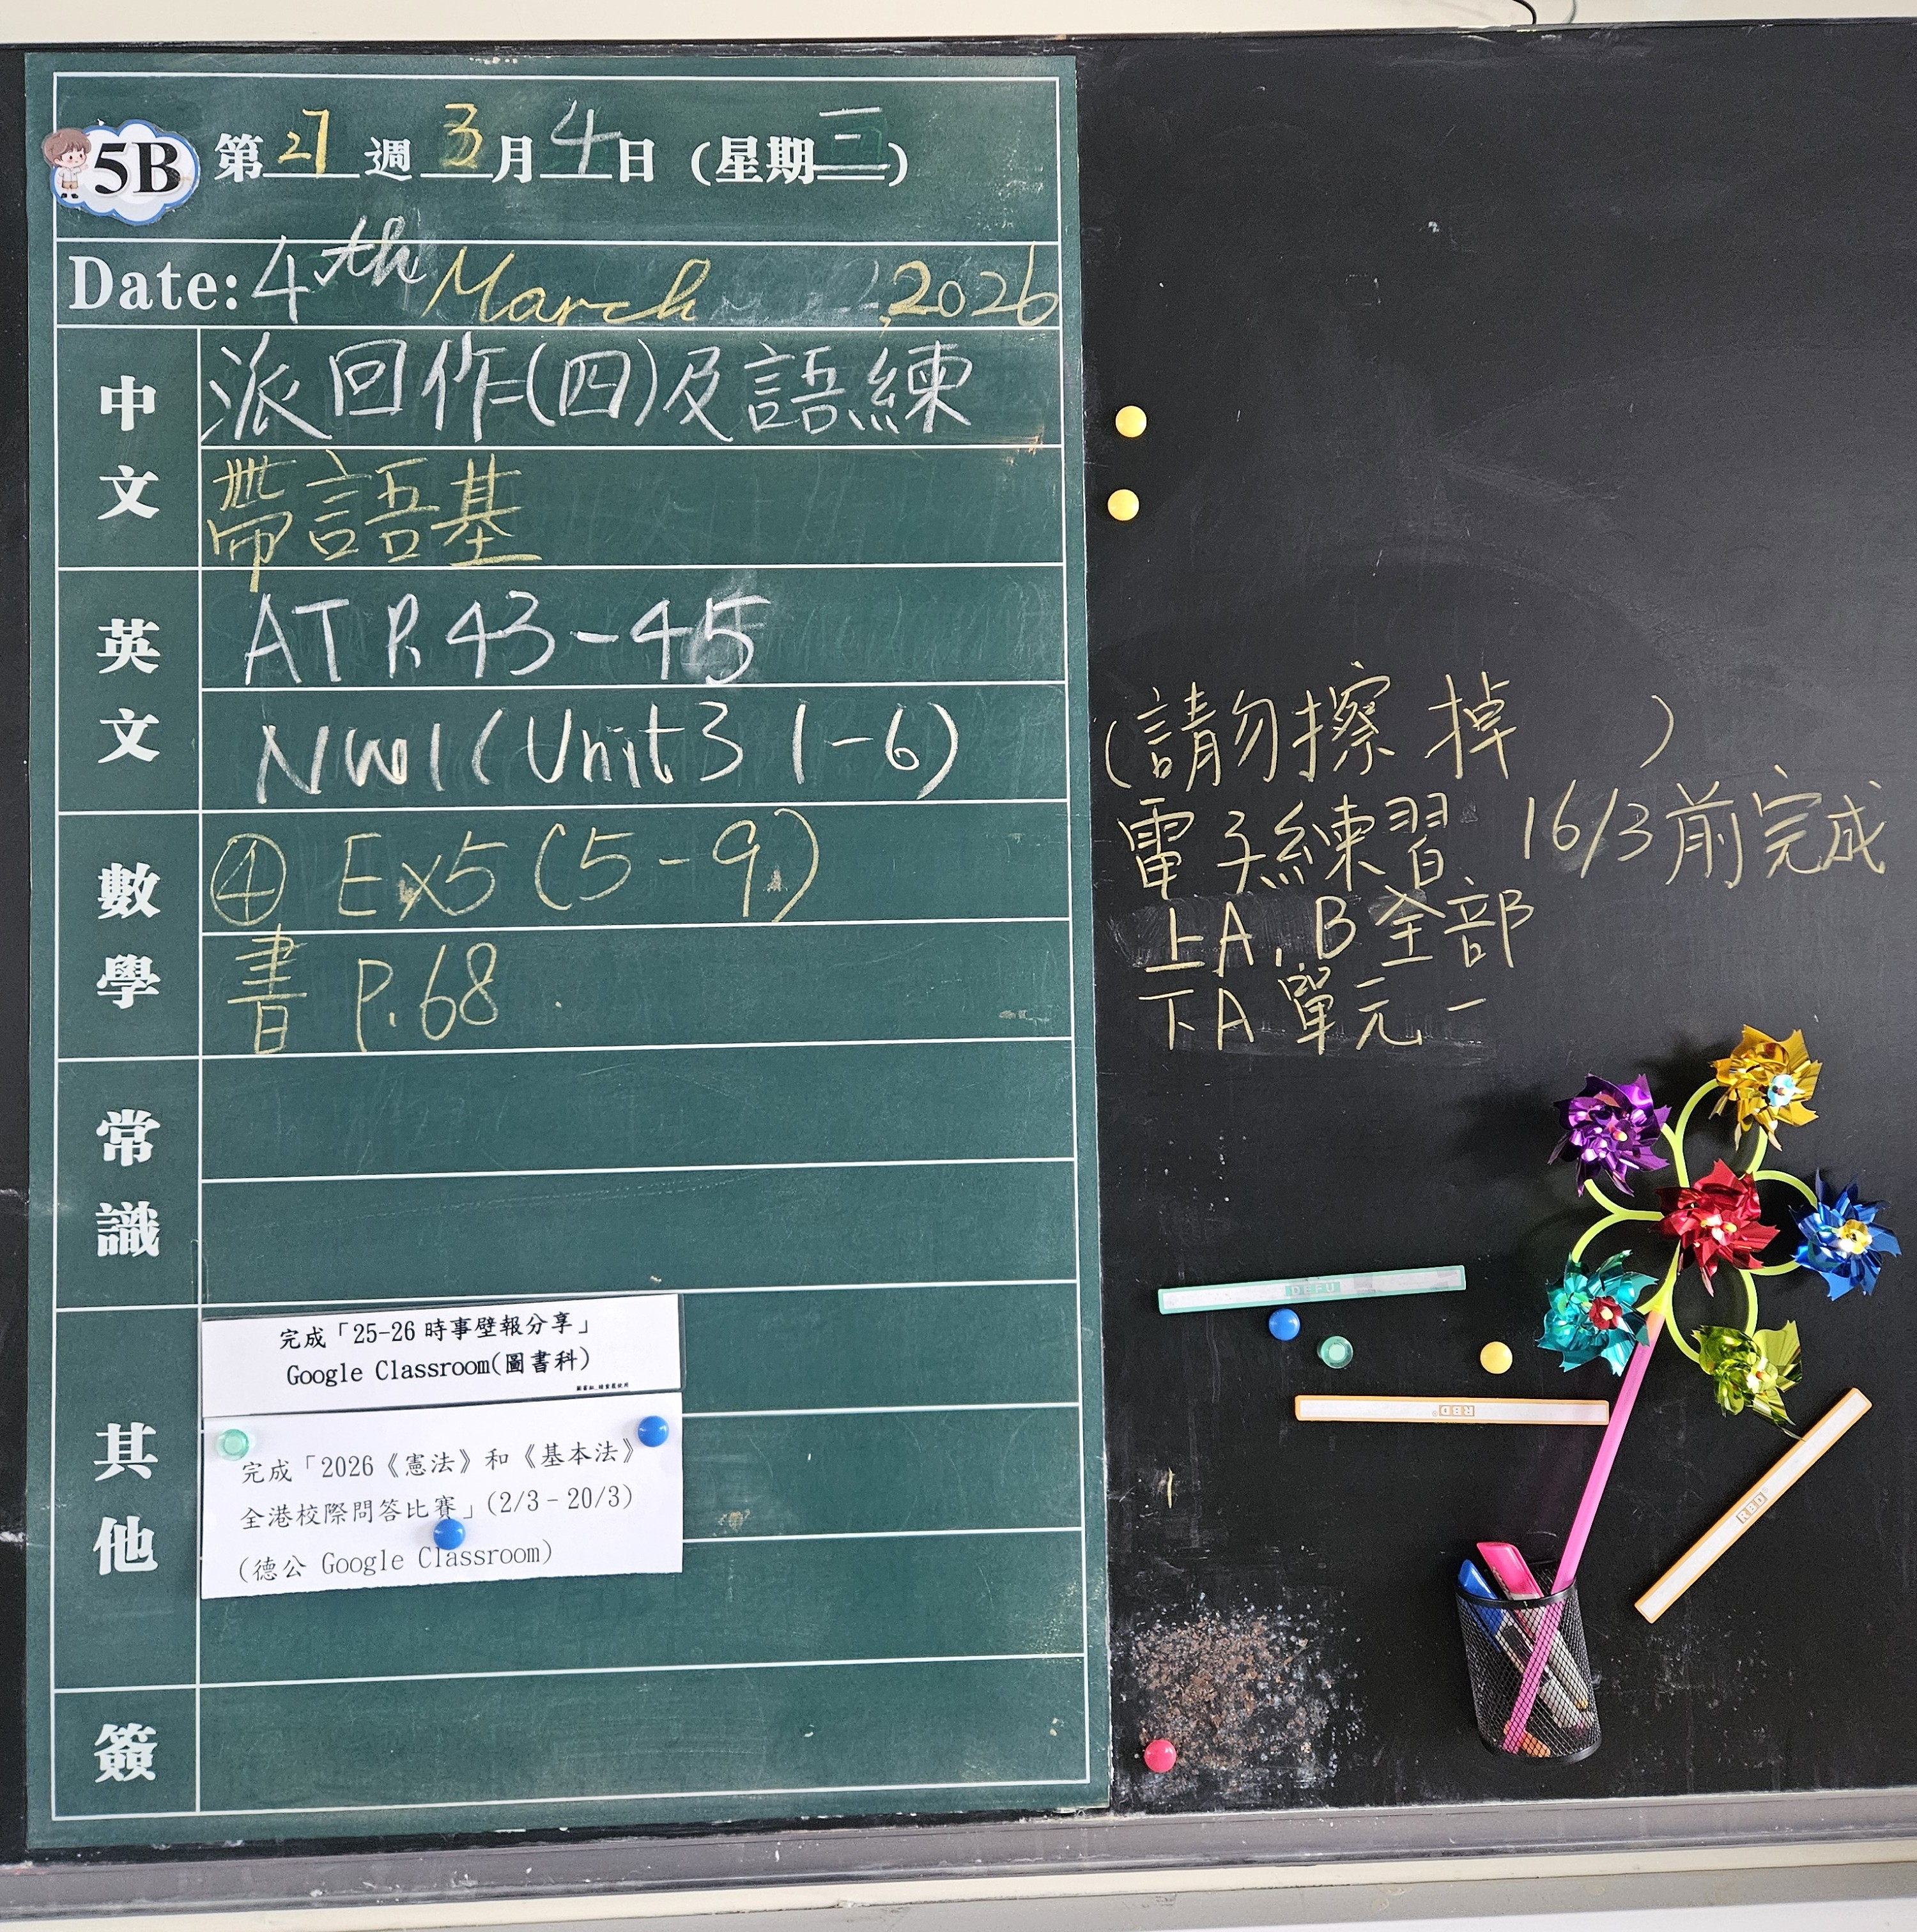 5B 第 27 週 3 月 4 日 (星期三)
Date: 4th March, 2026
中文
派回作(四)及語練
帶語基
英文
AT P.43-45
NW1 (Unit 3 1-6)
數學
④ Ex5 (5-9)
書 P.68
常識
其他
完成「25-26 時事壁報分享」
Google Classroom(圖書科)
完成「2026《憲法》和《基本法》
全港校際問答比賽」(2/3-20/3)
(德公 Google Classroom)
簽
(請勿擦掉)
電子練習 16/3前完成
上A, B全部
下A 單元一
DEFU
RBD
RBD